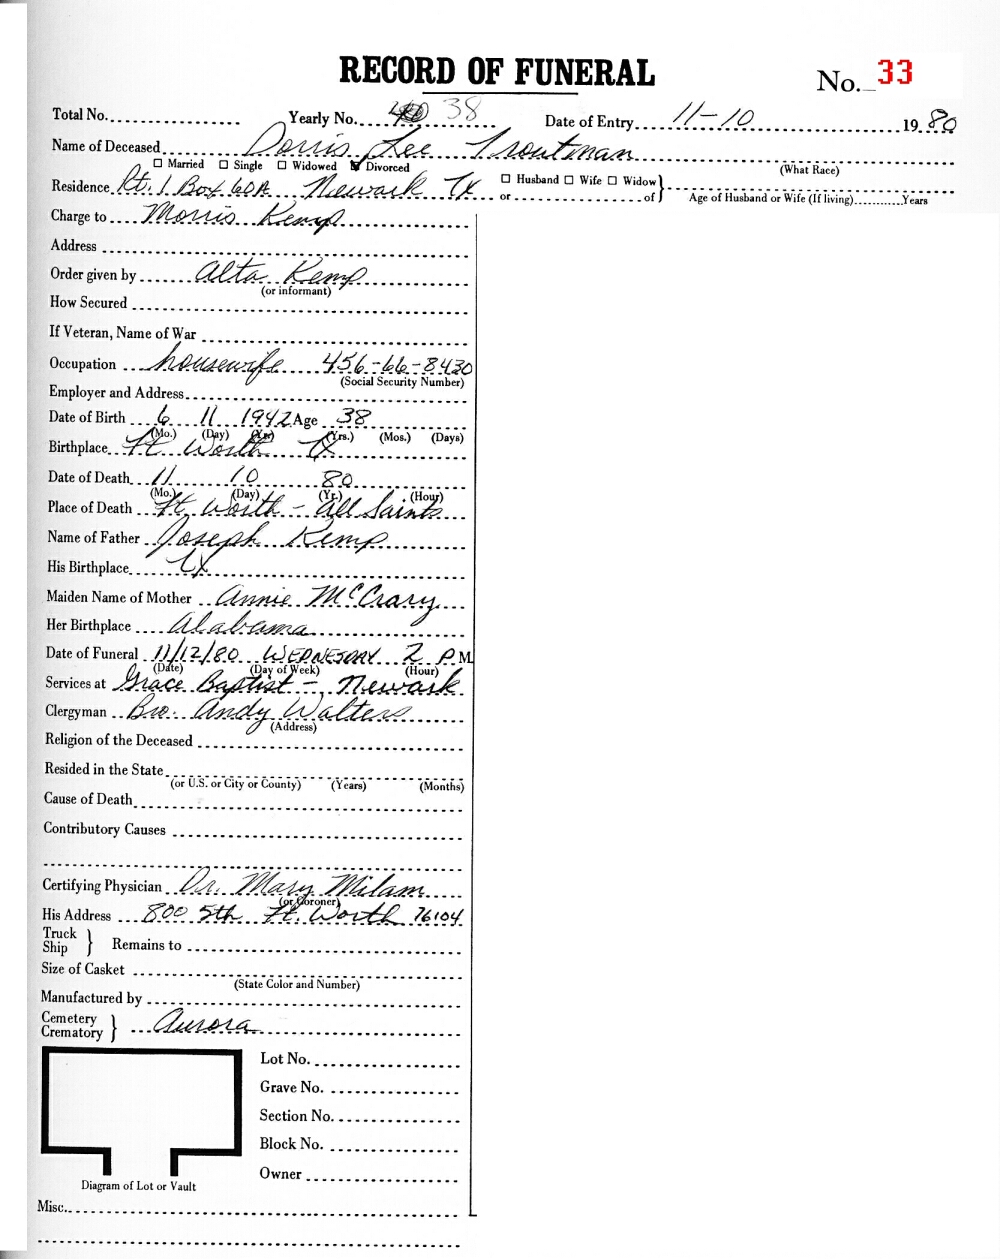 RECORD OF FUNERAL
No. 33
Total No. Yearly No. 38 Date of Entry 11-10 1980
Name of Deceased Dorris Lee Troutman
☐ Married ☐ Single ☐ Widowed ☑ Divorced (What Race)
Residence Rt. 1 Box 60A Newark Tx ☐ Husband ☐ Wife ☐ Widow
or of Age of Husband or Wife (If living) Years
Charge to Morris Kemp
Address
Order given by Alta Kemp
(or informant)
How Secured
If Veteran, Name of War
Occupation housewife 456-66-8430
(Social Security Number)
Employer and Address
Date of Birth 6 11 1942 Age 38
(Mo.) (Day) (Yr.) (Yrs.) (Mos.) (Days)
Birthplace Ft. Worth Tx
Date of Death 11 10 80
(Mo.) (Day) (Yr.) (Hour)
Place of Death Ft. Worth - All Saints
Name of Father Joseph Kemp
His Birthplace Tx
Maiden Name of Mother Annie McCrary
Her Birthplace Alabama
Date of Funeral 11/12/80 WEDNESDAY 2 P M.
(Date) (Day of Week) (Hour)
Services at Grace Baptist - Newark
Clergyman Bro. Andy Walters
(Address)
Religion of the Deceased
Resided in the State
(or U.S. or City or County) (Years) (Months)
Cause of Death
Contributory Causes
Certifying Physician Dr. Mary Milam
(or Coroner)
His Address 800 5th Ft. Worth 76104
Truck
Ship } Remains to
Size of Casket
(State Color and Number)
Manufactured by
Cemetery
Crematory } Aurora
Lot No.
Grave No.
Section No.
Block No.
Owner
Diagram of Lot or Vault
Misc.